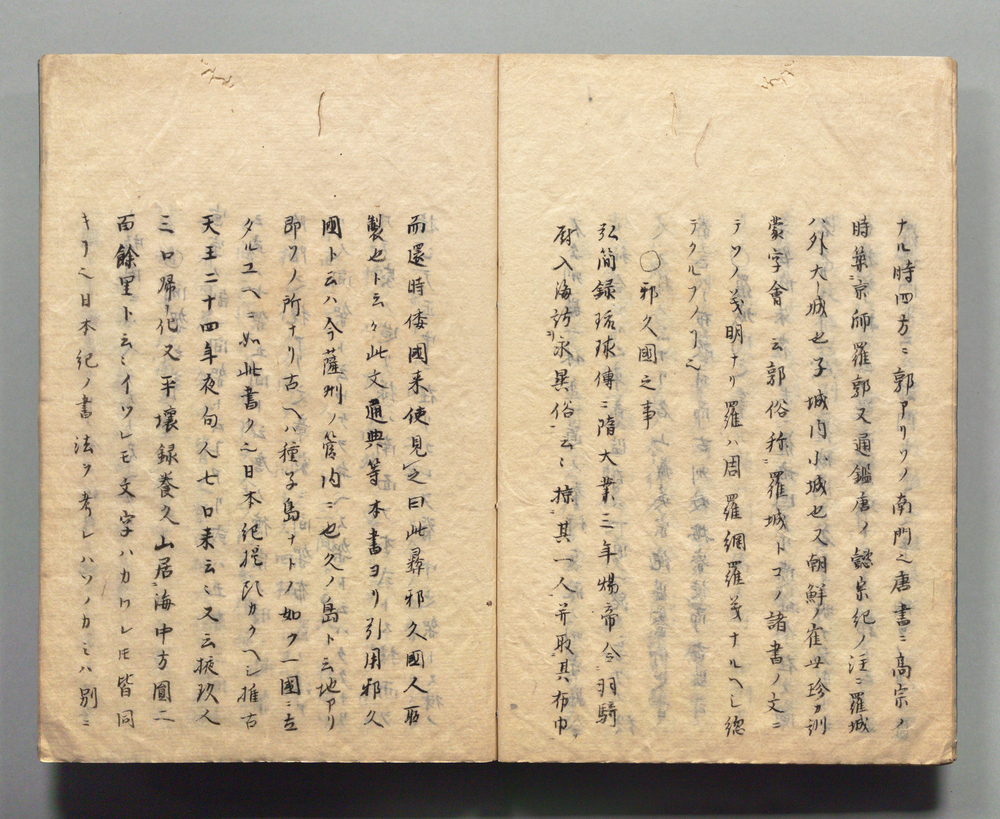 ナル時四方ニ郭アリソノ南門之唐書ニ高宗ノ
時築京師羅郭又通鑑唐ノ懿宗紀ノ注ニ羅城
ハ外大城也子城内小城也又朝鮮ノ崔世珍カ訓
蒙字會ニ云郭俗称羅城トコノ諸書ノ文ニ
テソノ義明ナリ羅ハ周羅網羅ノ義ナルヘシ總
テクルフノ
〇邪久國之事
弘簡録琉球傳ニ隋大業三年煬帝令羽騎
尉入海訪求異俗云々掠其一人并取其布巾
而還時倭國来使見之曰此彛邪久國人所
製也ト云々此文通典等本書ヨリ引用邪久
國ト云ハ今薩州ノ管内ニ也久ノ島ト云地アリ
即ソノ所ナリ古ヘハ種子島ナトノ如ク一國ニ立
タルユヘニ如此書ク之日本紀掖玖カクヘシ推古
天王二十四年夜句人七口来云ニ又云掖玖人
三口帰化又平壤録養久山居海中方圓二
百餘里ト云ニイツレモ文字ハカワレモ皆同
キ之日本紀ノ書法ヲ考レハソノカミハ別ニ